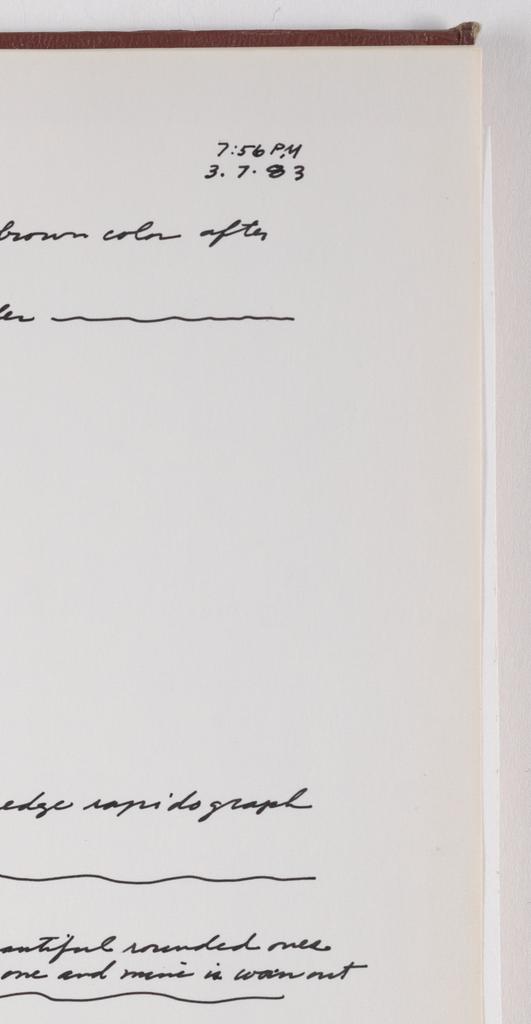 7:56 PM
3. 7. 83
brown color after
ler
edge rapidograph
autiful rounded ones
one and mine is worn out